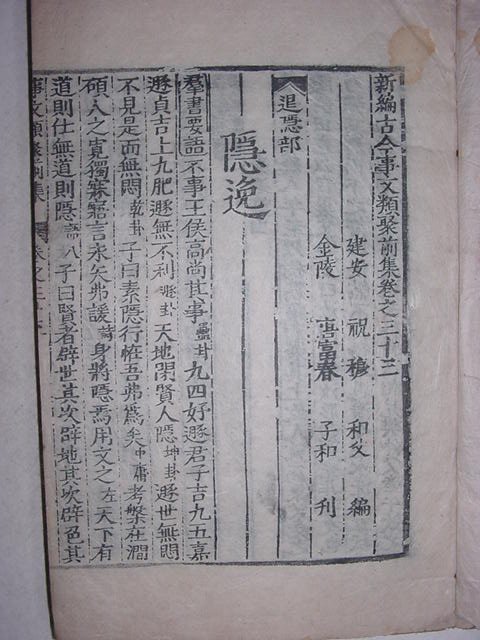 新編古今事文類聚前集卷之三十三
建安 祝穆 和父 編
金陵 唐富春 子和 刊
退隱部
隱逸
羣書要語不事王侯高尚其事蠱卦九四好遯君子吉九五嘉
遯貞吉上九肥遯無不利遯卦天地閉賢人隱坤卦遯世無悶
不見是而無悶乾卦子曰素隱行恠吾弗爲矣中庸考槃在澗
碩人之寬獨寐寤言永矢弗諼詩身將隱焉用文之左天下有
道則仕無道則隱語八子曰賢者辟世其次辟地其次辟色其
事文類聚前集 卷之三十三